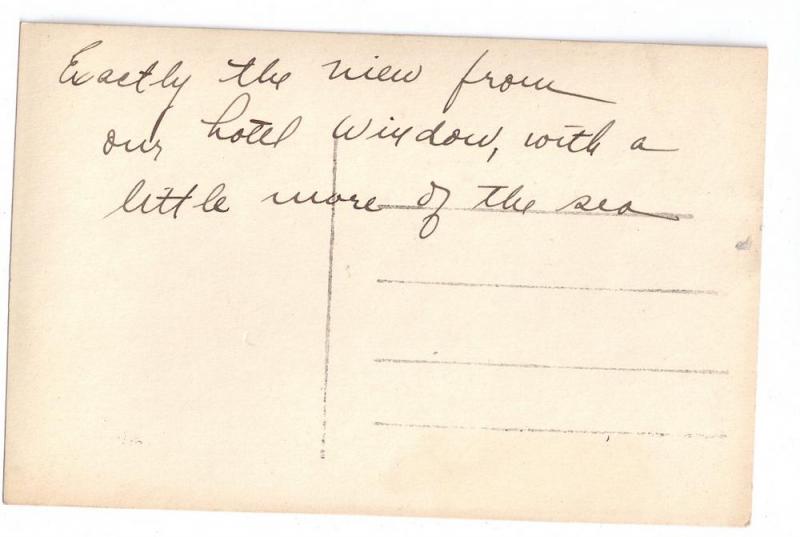 Exactly the view from
our hotel window, with a
little more of the sea